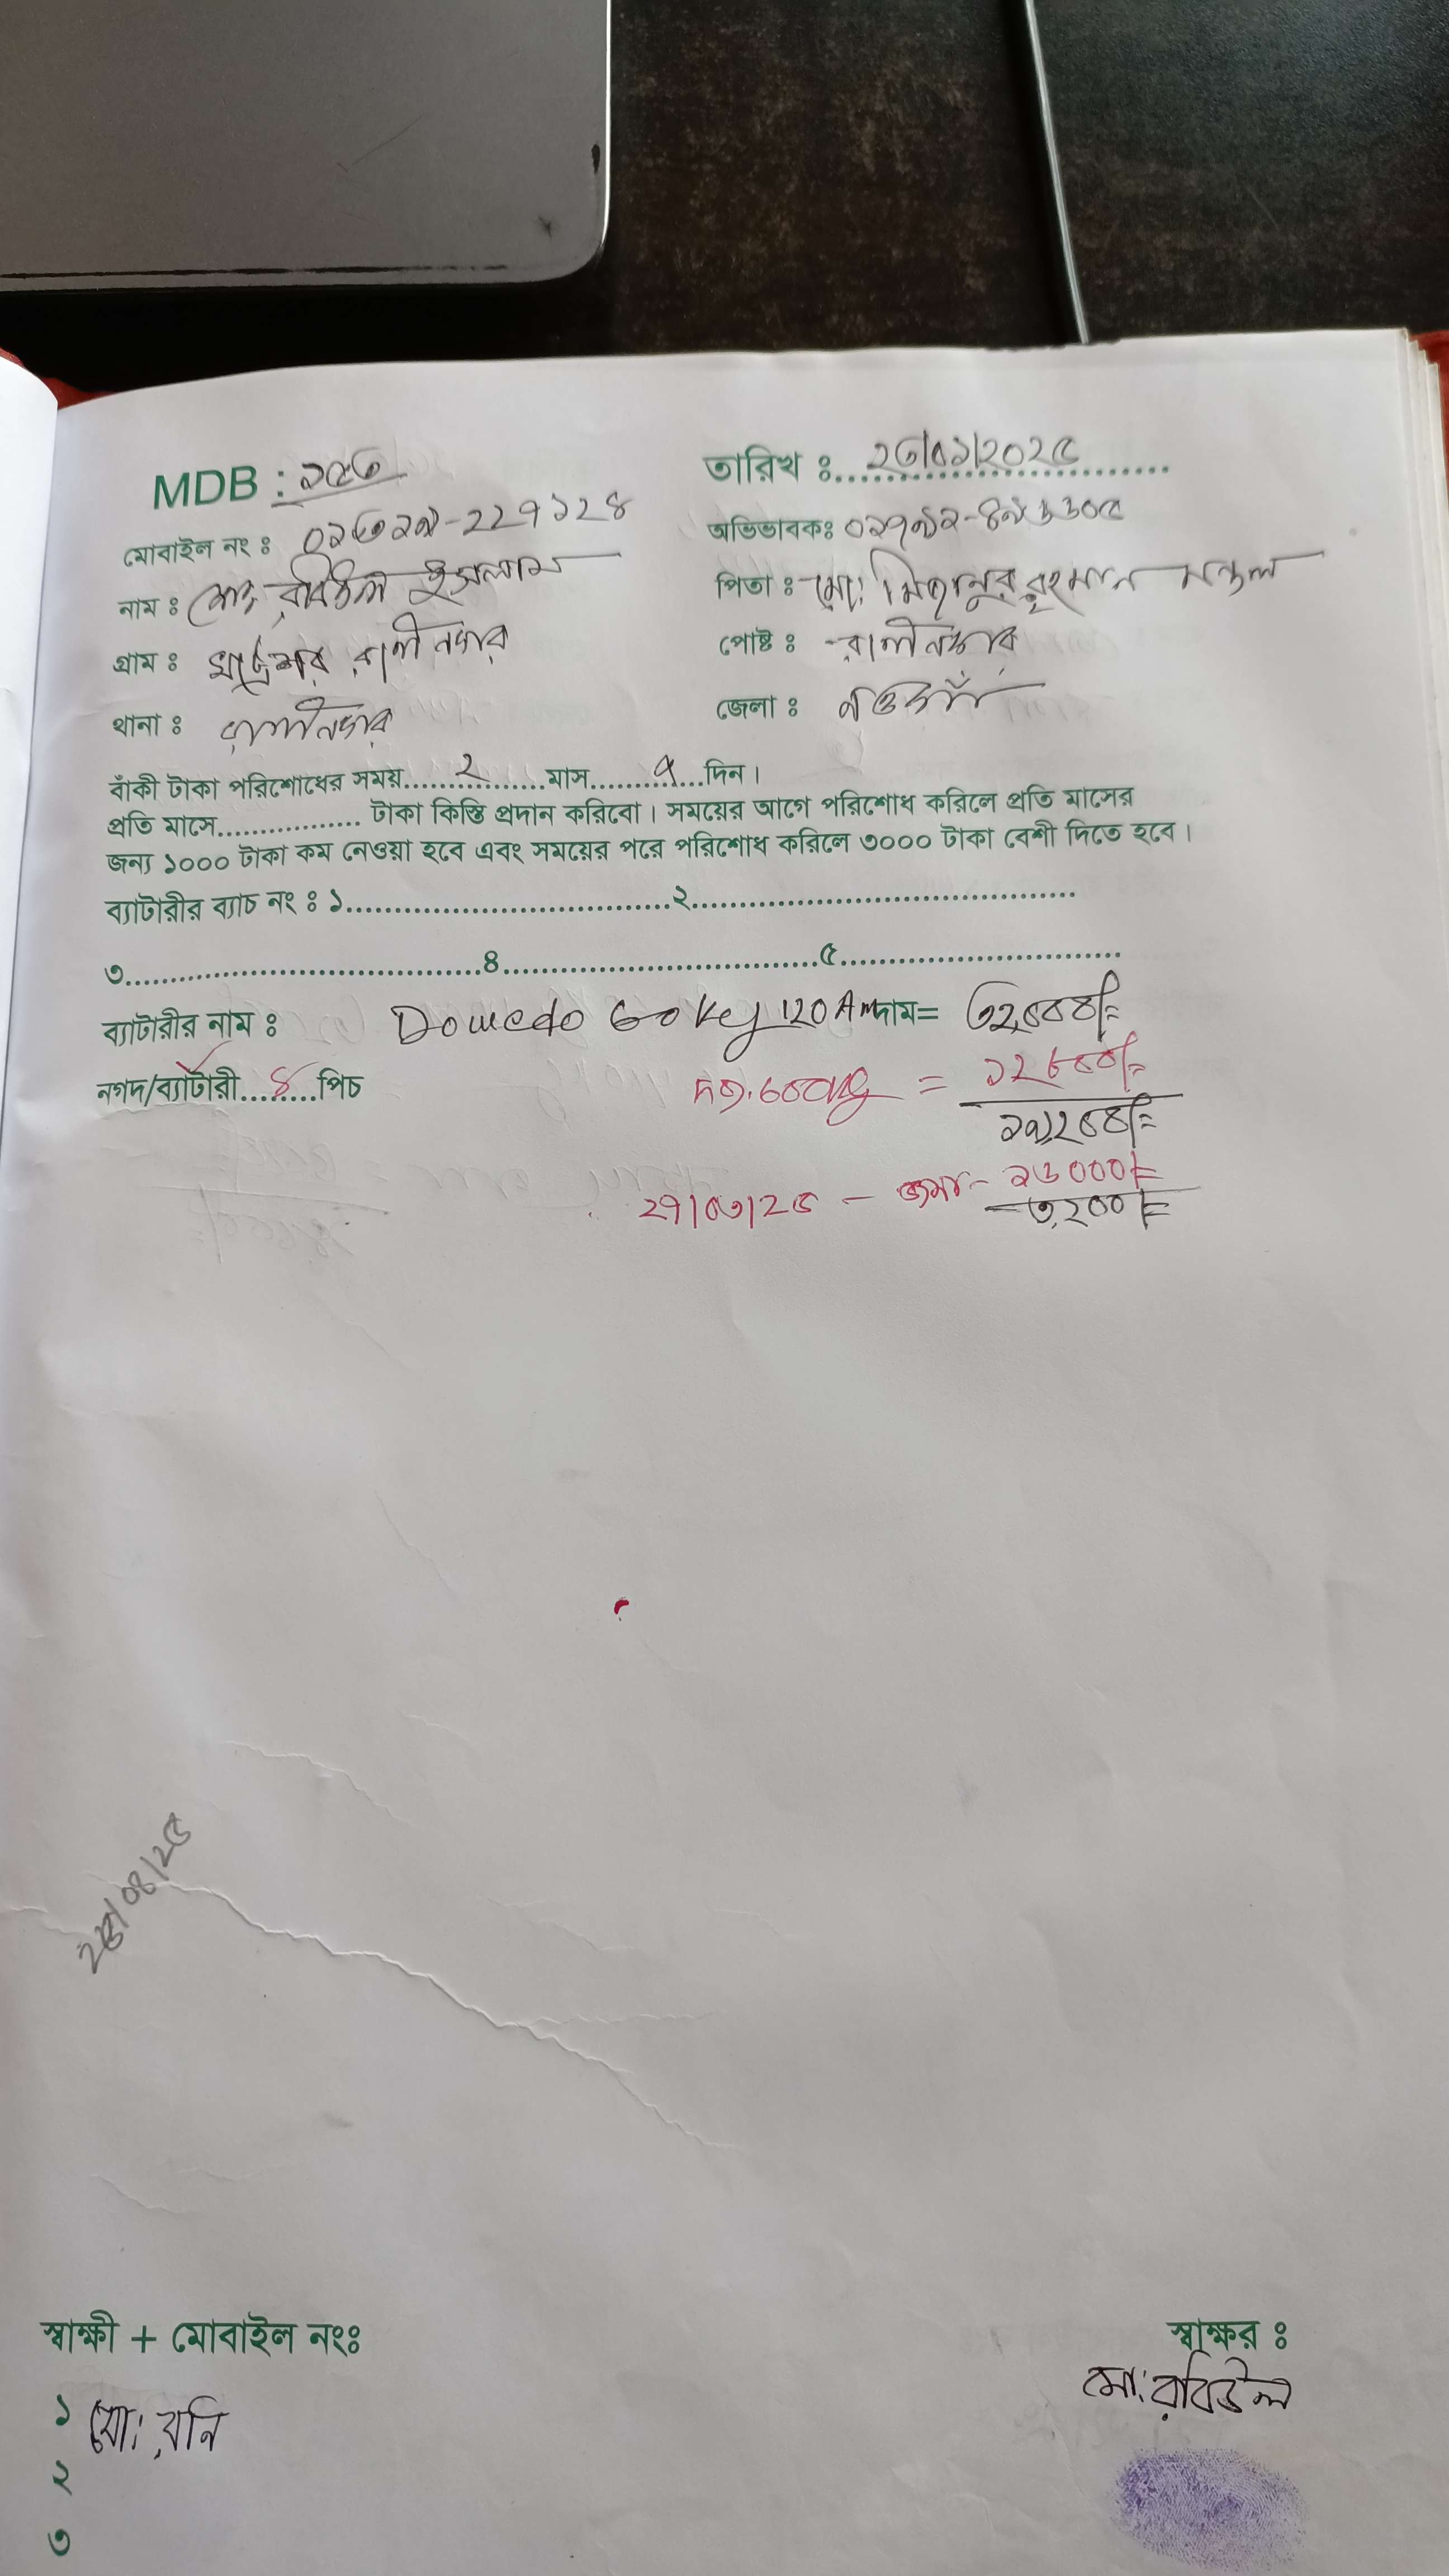 MDB : ১৫৩ তারিখ ঃ ২৩/০১/২০২৫
মোবাইল নং ঃ ০১৩২৯-২২৭১২৪ অভিভাবকঃ ০১৭৯২-৪৯৬৬০৫
নাম ঃ মোঃ রবিউল ইসলাম পিতা ঃ মো: মিজানুর রহমান মন্ডল
গ্রাম ঃ রাণীনগর পোষ্ট ঃ রাণীনগর
থানা ঃ রাণীনগর জেলা ঃ নওগাঁ
বাঁকী টাকা পরিশোধের সময়......২......মাস......৭...দিন।
প্রতি মাসে................ টাকা কিস্তি প্রদান করিবো। সময়ের আগে পরিশোধ করিলে প্রতি মাসের
জন্য ১০০০ টাকা কম নেওয়া হবে এবং সময়ের পরে পরিশোধ করিলে ৩০০০ টাকা বেশী দিতে হবে।
ব্যাটারীর ব্যাচ নং ঃ ১..................................২........................................
৩....................................৪................................৫.............................
ব্যাটারীর নাম ঃ 120 Am দাম=
নগদ/ব্যাটারী...৪...পিচ =
২৭/০৩/২৫ – জমা- ১৬০০০/=
৩,২০০/=
/০৪/২৫
স্বাক্ষী + মোবাইল নংঃ স্বাক্ষর ঃ
১ মো: রনি মো: রবিউল
২
৩